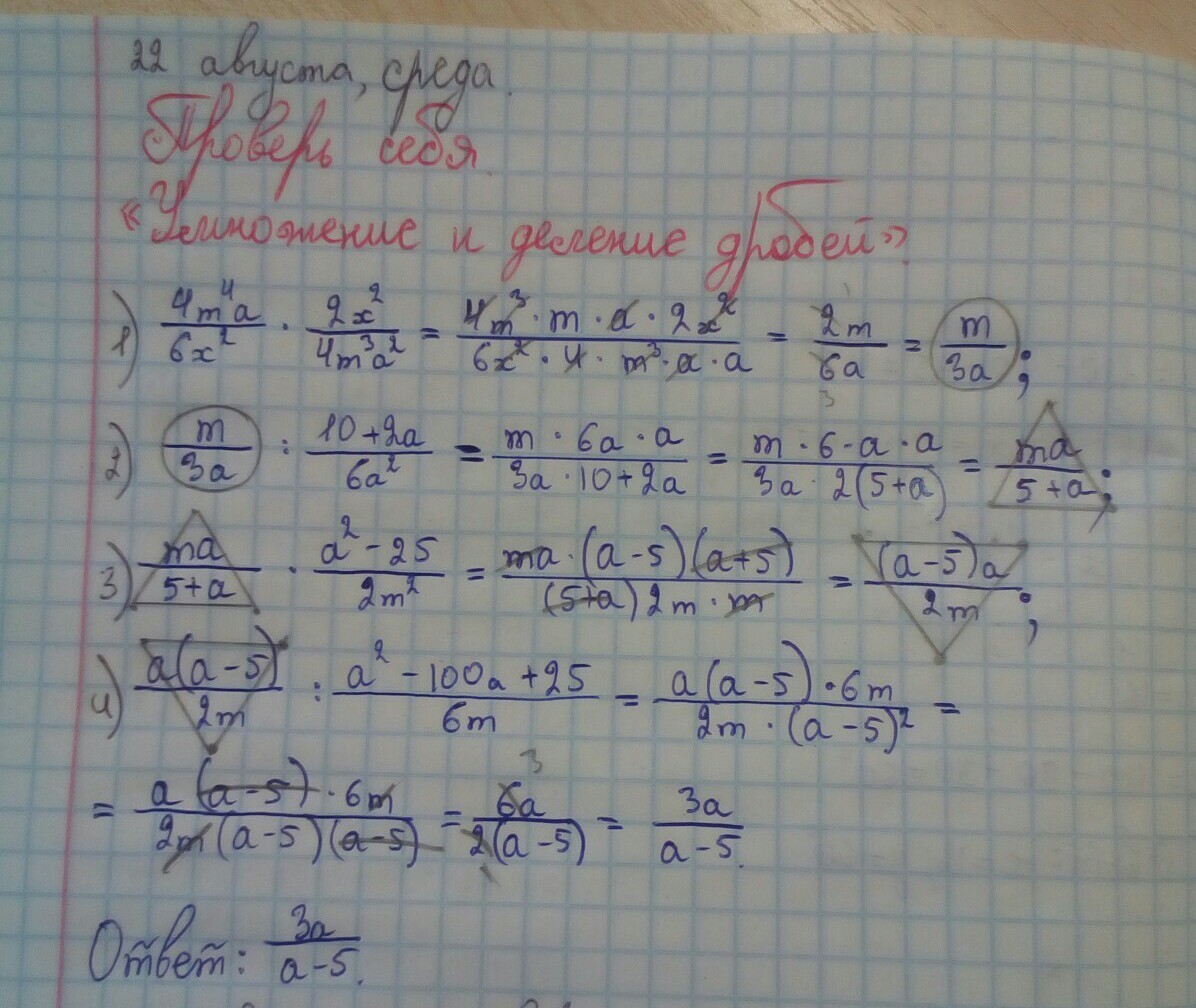 22 августа, среда.
Проверь себя.
«Умножение и деление дробей».
1) 4m⁴a/6x² · 2x²/4m³a² = 4m³·m·a·2x²/6x²·4·m³·a·a = 2m/6a = m/3a; 1 3
2) m/3a : 10+2a/6a² = m·6a·a/3a·10+2a = m·6·a·a/3a·2(5+a) = ma/5+a;
3) ma/5+a · a²-25/2m² = ma·(a-5)(a+5)/(5+a)2m·m = (a-5)a/2m;
4) a(a-5)/2m : a²-100a+25/6m = a(a-5)·6m/2m·(a-5)² =
= a(a-5)·6m/2m(a-5)(a-5) = 6a/2(a-5) = 3a/a-5. 3 1
Ответ: 3a/a-5.